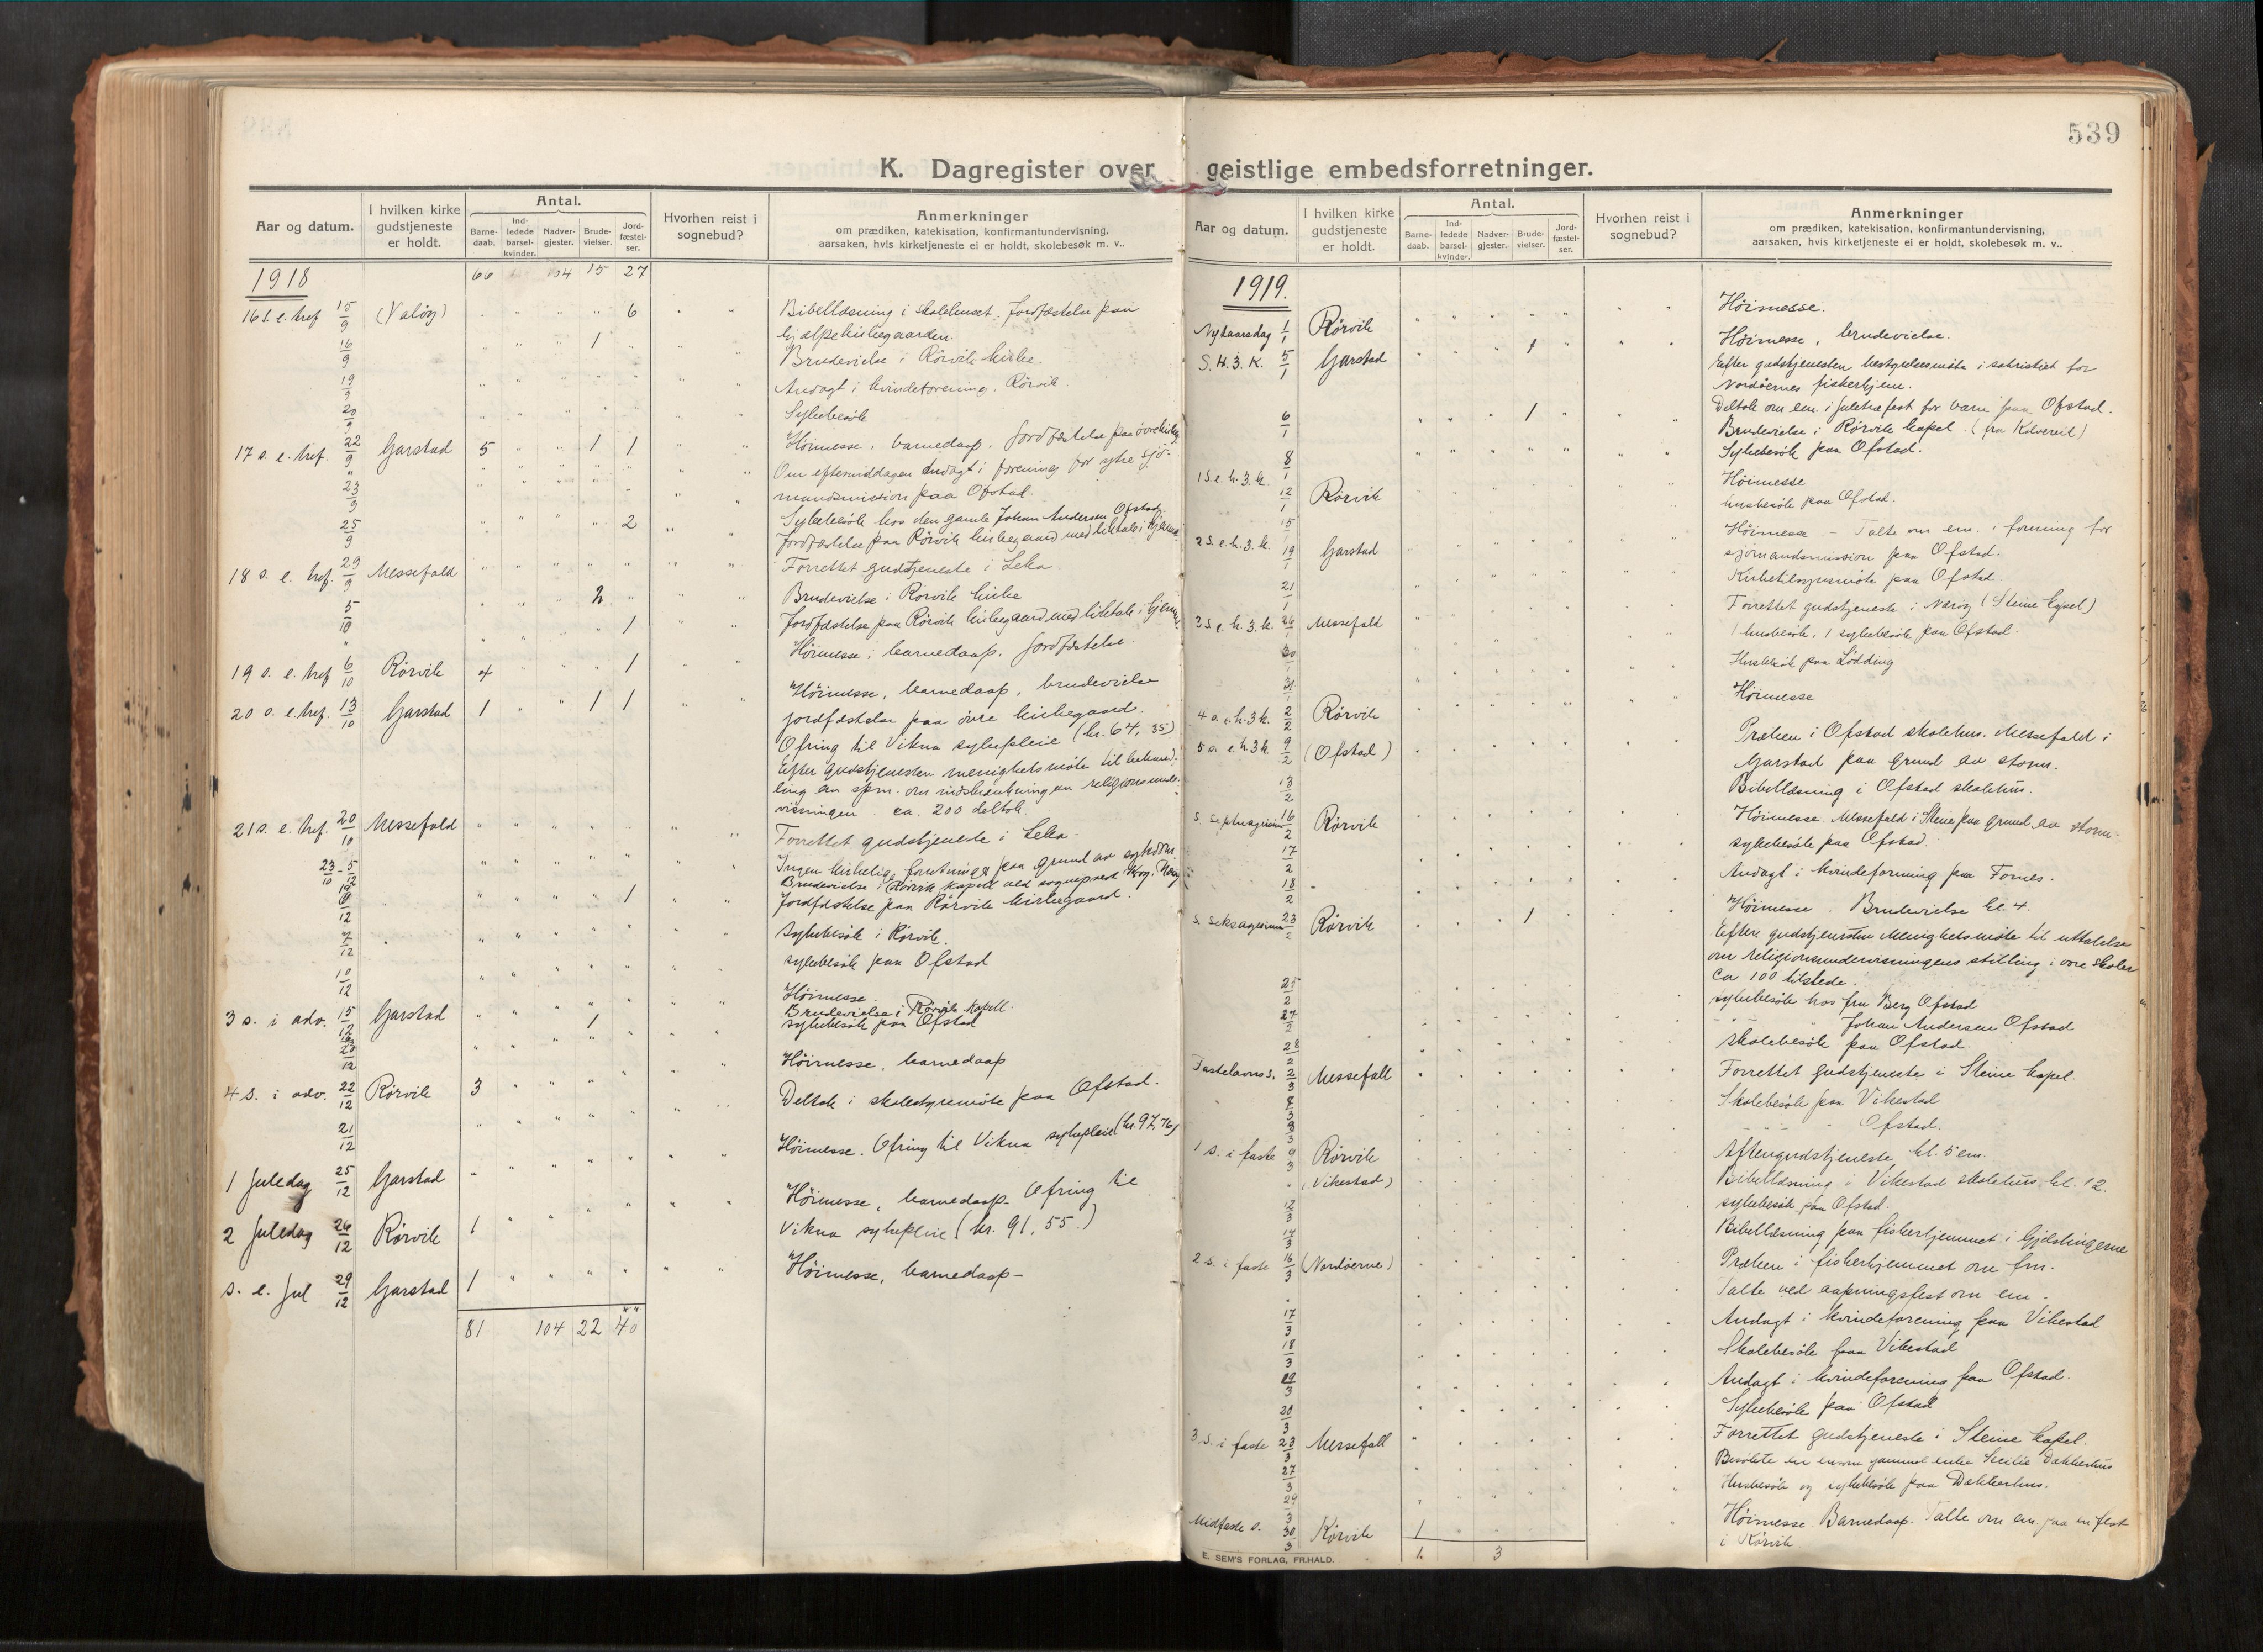 539
K. Dagregister over geistlige embedsforretninger.
Aar og datum.
I hvilken kirke gudstjeneste er holdt.
Antal.
Barne-daab.
Ind-ledede barsel-kvinder.
Nadver-gjester.
Brude-vielser.
Jord-fæstel-ser.
Hvorhen reist i sognebud?
Anmerkninger
om prædiken, katekisation, konfirmantundervisning,
aarsaken, hvis kirketjeneste ei er holdt, skolebesøk m. v..
1918 66 104 15 27
16 s. e. tref 15/9 (Valöy) 6 Bibellæsning i skolehuset. Jordfæstelse paa
hjælpekirkegaarden.
16/9 1 Brudevielse i Rörvik kirke.
19/9 Andagt i kvindeforening. Rörvik
20/9 Sykebesök
17 s. e. tref. 22/9 Garstad 5 1 1 Höimesse, barnedaap. Jordfæstelse paa övre
" Om eftermiddagen andagt i forening for ytre sjö-
23/9 mandsmission paa Ofstad.
Sykebesök hos den gamle Johan Andersen Ofstad.
25/9 2 Jordfæstelse paa Rörvik kirkegaard med liktale i hjemmet
18 s. e. tref. 29/9 Messefald Forrettet gudstjeneste i Leka.
5/10 2 Brudevielse i Rörvik kirke
" 1 Jordfæstelse paa Rörvik kirkegaard med liktale i hjemmet
19 s. e. tref 6/10 Rörvik 4 1 Höimesse, barnedaap, jordfæstelse.
20 s. e. tref. 13/10 Garstad 1 1 1 Höimesse, barnedaap, brudevielse
jordfæstelse paa övre kirkegaard.
Ofring til Vikna sykepleie (kr. 64,35)
Efter gudstjenesten menighetsmöte til behand-
ling av spm. om indskrænkning av religionsunder-
visningen. ca. 200 deltok.
21 s. e. tref. 20/10 Messefald Forrettet gudstjeneste i Leka.
23/10 - 5/12 Ingen kirkelige forretninger paa grund av sygdom
Brudevielse i Rörvik kapell ved sogneprest
/12 1 Jordfæstelse paa Rörvik kirkegaard.
7/12 Sykebesök i Rörvik.
10/12 sykebesök paa Ofstad
3 s. i adv. 15/12 Garstad Höimesse.
1 Brudevielse i Rörvik kapell.
20/12 sykebesök paa Ofstad
4 s. i adv. 22/12 Rörvik 3 Höimesse, barnedaap
21/12 Deltok i skolestyremöte paa Ofstad.
1 Juledag 25/12 Garstad Höimesse. Ofring til Vikna sykepleie (kr. 97,76)
2 Juledag 26/12 Rörvik 1 Höimesse, barnedaap. Ofring til
Vikna sykepleie (kr. 91,55.)
s. e. Jul 29/12 Garstad 1 Höimesse, barnedaap -
81 104 22 40
Aar og datum.
I hvilken kirke gudstjeneste er holdt.
Antal.
Barne-daab.
Ind-ledede barsel-kvinder.
Nadver-gjester.
Brude-vielser.
Jord-fæstel-ser.
Hvorhen reist i sognebud?
Anmerkninger
om prædiken, katekisation, konfirmantundervisning,
aarsaken, hvis kirketjeneste ei er holdt, skolebesøk m. v..
1919.
Nytaarsdag 1/1 Rörvik Höimesse.
S. H. 3. K. 5/1 Garstad 1 Höimesse, brudevielse.
Efter gudstjenesten bestyrelsesmöte i sakristiet for
Nordöernes fiskerhjem.
Deltok om em. i juletræfest for barn paa Ofstad.
6/1 1 Brudevielse i Rörvik kapel. (fra Kolvereid)
8/1 Sykebesök paa Ofstad.
1 S. e. h. 3. k. 12/1 Rörvik Höimesse
15/1 husbesök paa Ofstad.
2 S. e. h. 3. k. 19/1 Garstad Höimesse - Talte om em. i forening for
sjömandsmission paa Ofstad.
21/1 Kirketilsynsmöte paa Ofstad.
3 S. e. h. 3. k. 26/1 Messefald Forrettet gudstjeneste i Næröy (Steine kapel)
30/1 1 husbesök, 1 sykebesök paa Ofstad.
31/1 Husbesök paa Lödding
4 s. e. h. 3 k. 2/2 Rörvik Höimesse
5 s. e. h. 3 k. 9/2 (Ofstad) Præken i Ofstad skolehus. Messefald i
Garstad paa grund av storm.
13/2 Bibellæsning i Ofstad skolehus.
S. septuagesima 16/2 Rörvik Höimesse. Messefald i Steine paa grund av storm.
17/2 sykebesök paa Ofstad.
18/2 Andagt i kvindeforening paa Fornes.
S. seksagesima 23/2 Rörvik 1 Höimesse. Brudevielse kl. 4.
Efter gudstjenesten Menighetsmöte til uttalelse
om religionsundervisningens stilling i vore skoler
ca 100 tilstede.
25/2 sykebesök hos fru Berg Ofstad
27/2 - - Johan Andersen Ofstad
28/2 skolebesök paa Ofstad.
Fastelavns s. 2/3 Messefall Forrettet gudstjeneste i Steine kapel.
Skolebesök paa Vikestad
- - - Ofstad.
1 s. i faste 9/3 Rörvik Aftengudstjeneste kl. 5 em.
(Vikestad) Bibellæsning i Vikestad skolehus kl. 12.
12/3 sykebesök paa Ofstad.
Bibellæsning paa fiskerhjemmet i Gjæslingerne
2 s. i faste 16/3 (Nordöerne) Præken i fiskerhjemmet om fm.
Talte ved aapningsfest om em.
17/3 Andagt i kvindeforening paa Vikestad
18/3 Skolebesök paa Vikestad
19/3 Andagt i kvindeforening paa Ofstad.
20/3 Sykebesök paa Ofstad
3 s. i faste 23/3 Messefall Forrettet gudstjeneste i Steine kapel.
27/3 Besökte en ensom gammel enke Secilie Dekkerhus
29/3 Husbesök og sykebesök paa Dekkerhus.
Midfaste s. 30/3 Rörvik 1 Höimesse. Barnedaap. Talte om em. paa en fest
i Rörvik
1. 3
E. SEM'S FORLAG, FR.HALD.